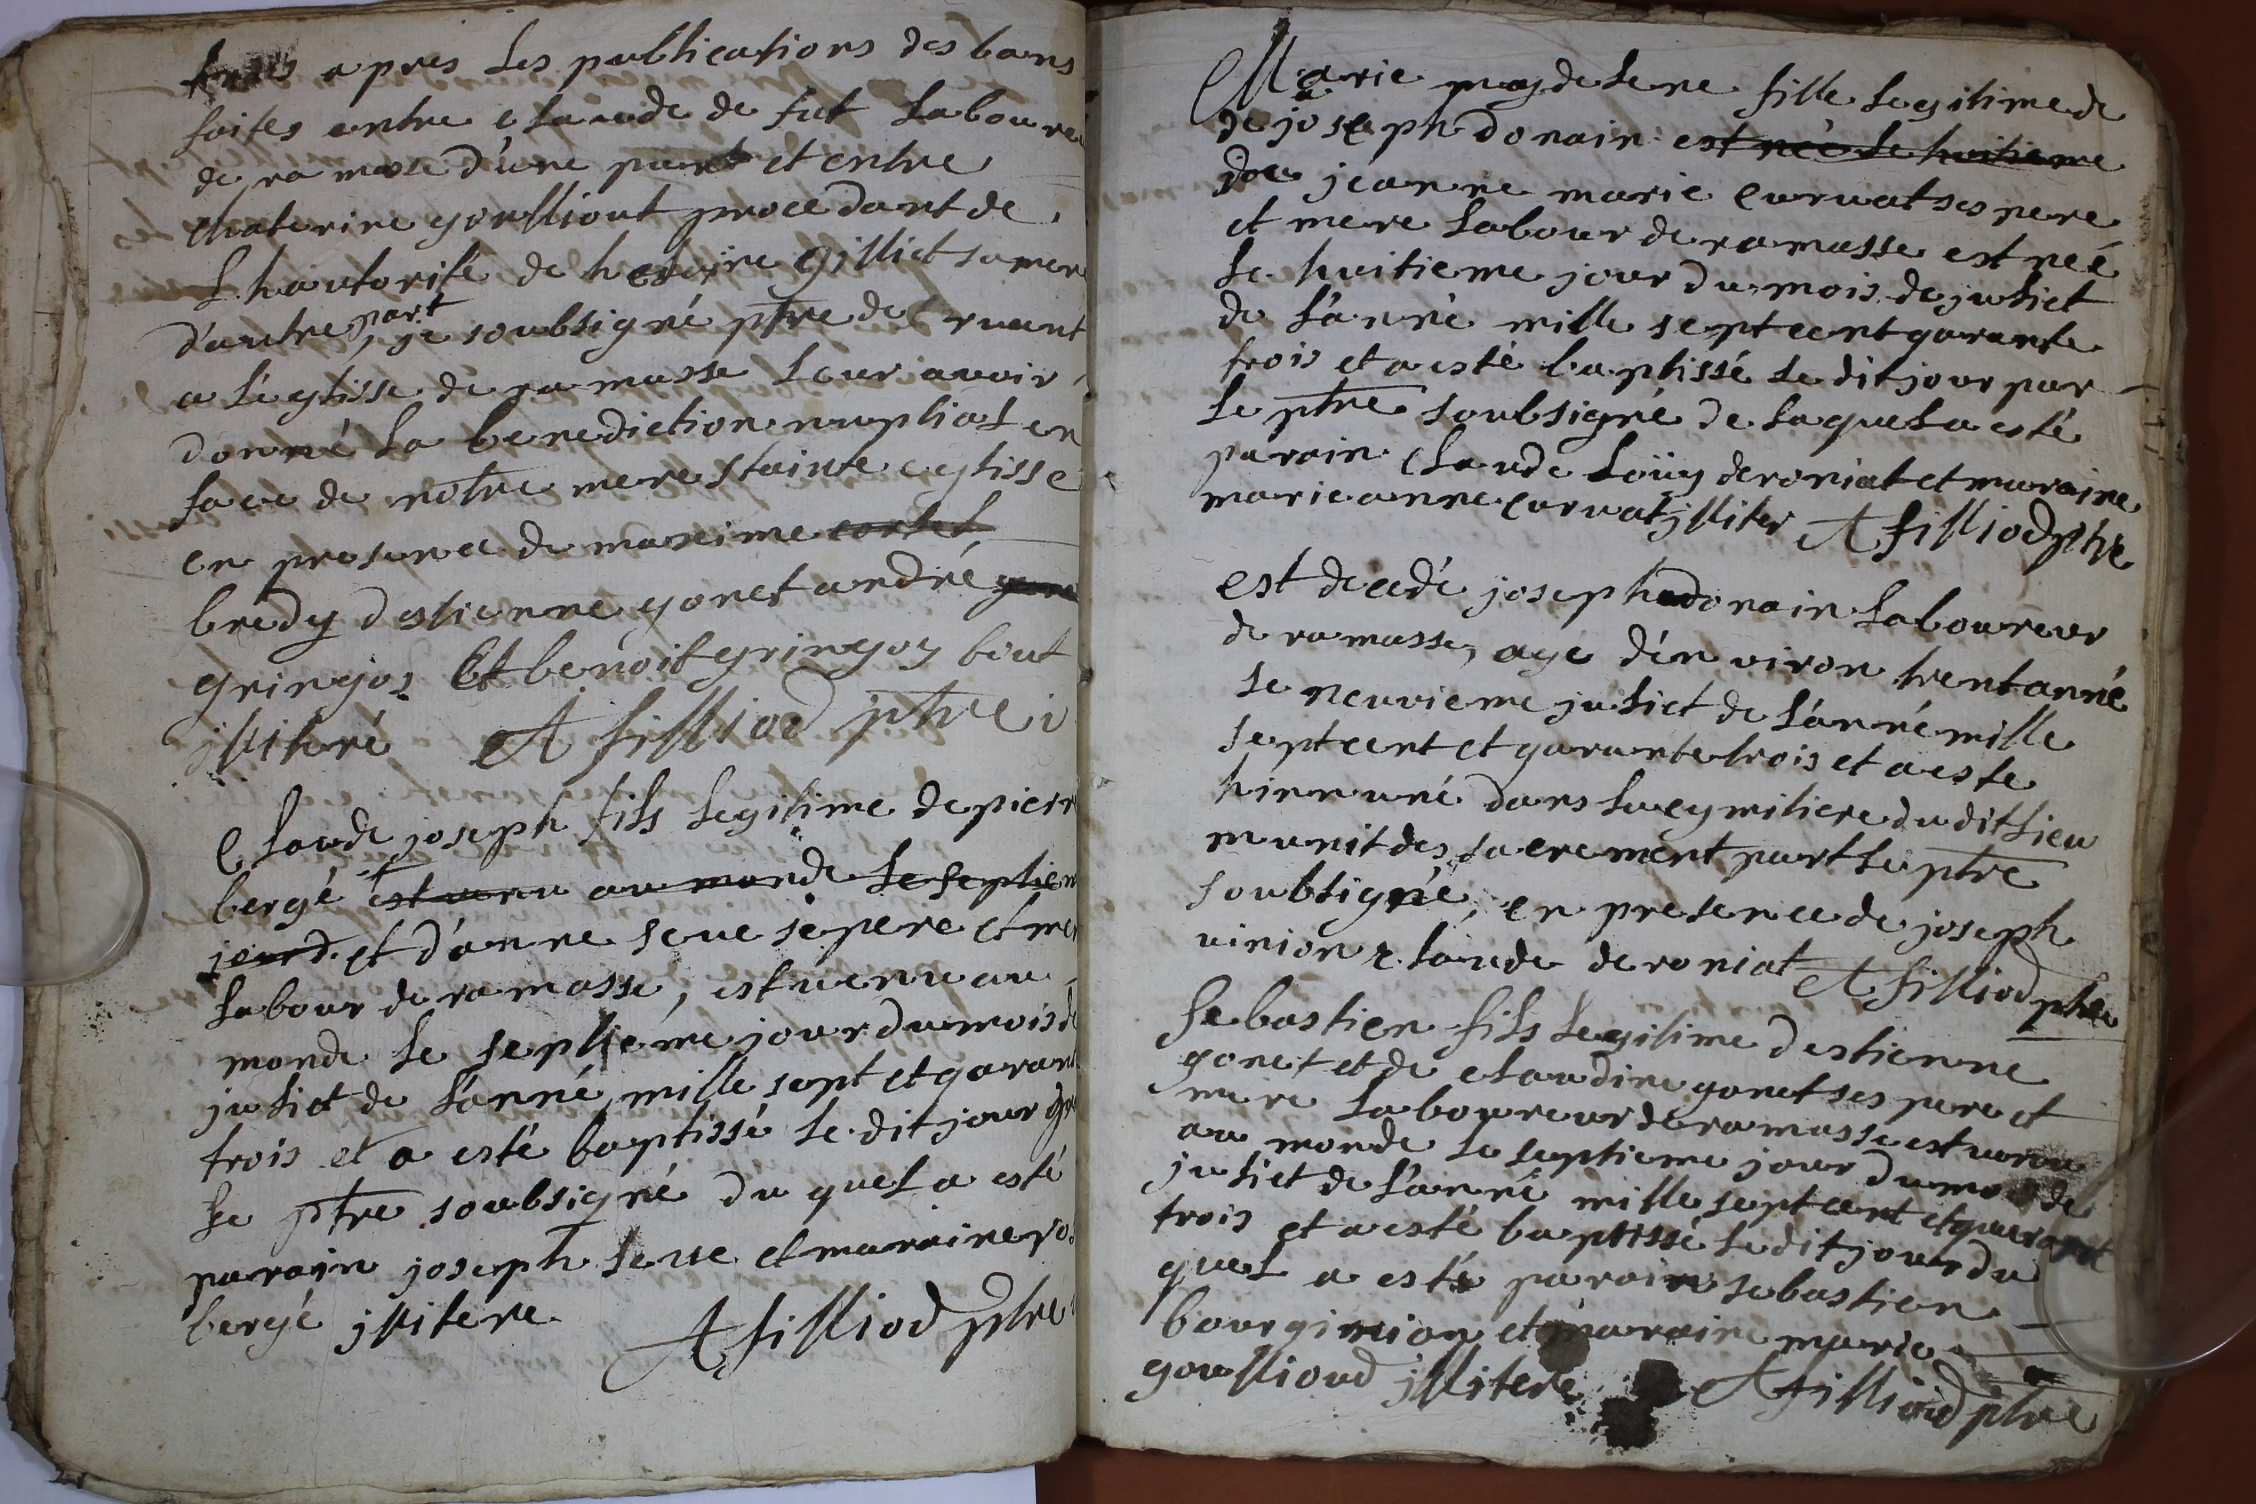 apres Les publications des bans
faites entre Claude de fut Laboure
de ramase d'une part et entre
chaterine goulliout procedant de
L'hautorité de helaine gilliet sa mere
d'autre part, je soubsigné ptre deservant
a L'eglisse de ramasse Leur avoir
donné La benediction nuptial en
face de notre mere stainte eglisse
en presence de maxime cortet
bredy destienne gonet andré gone
gringoz Et benoit gringoz tout
jlliteré A filliod ptre
Claude joseph fils Legitime de pierr
bergé est venu au monde Le septiem
jour d. et d'anne seve se pere et mer
Labour de ramasse, est venu au
monde Le septiéme jour du mois de
juliet de L'anné mille sept et garant
trois et a esté baptissé Le dit jour
Le ptre soubsigné du quel a esté
parain joseph seve et maraine
bergé jllitere A filliod ptre
Marie magdelene fille Legitime de
de joseph donain est née Le huitieme
de jeanne marie curvat ses pere
et mere Labour de ramasse est neé
Le huitieme jour du mois de juliet
de L'anné mille sept cent garante
trois et a esté baptissé Le dit jour par
Le ptre soubsigné de Laquel a esté
parain Claude Loüy deroniat et maraine
marie anne curvat jlliter A filliod ptre
est decedé joseph donain Laboureur
de ramasse, agé d'environ trent anné
Le neuvieme juliet de L'anné mille
sept cent et garante trois et a este
hinnuné dans La cymitiere du dit Lieu
munit des sacrement part Le ptre
soubsigné, en presence de joseph
vinion claude deroniat A filliod ptre
Sebastien fils Legitime destienne
gonet et de claudine gonet ses pere et
mere Laboureur de ramasse est venu
au monde Le septieme jour du mois de
juliet de L'anné mille sept cent et garant
trois et a esté baptissé Le dit jour du
quel a esté parain sebastien
bourginion et maraine marie
goullioud jlliterè A filliod ptre